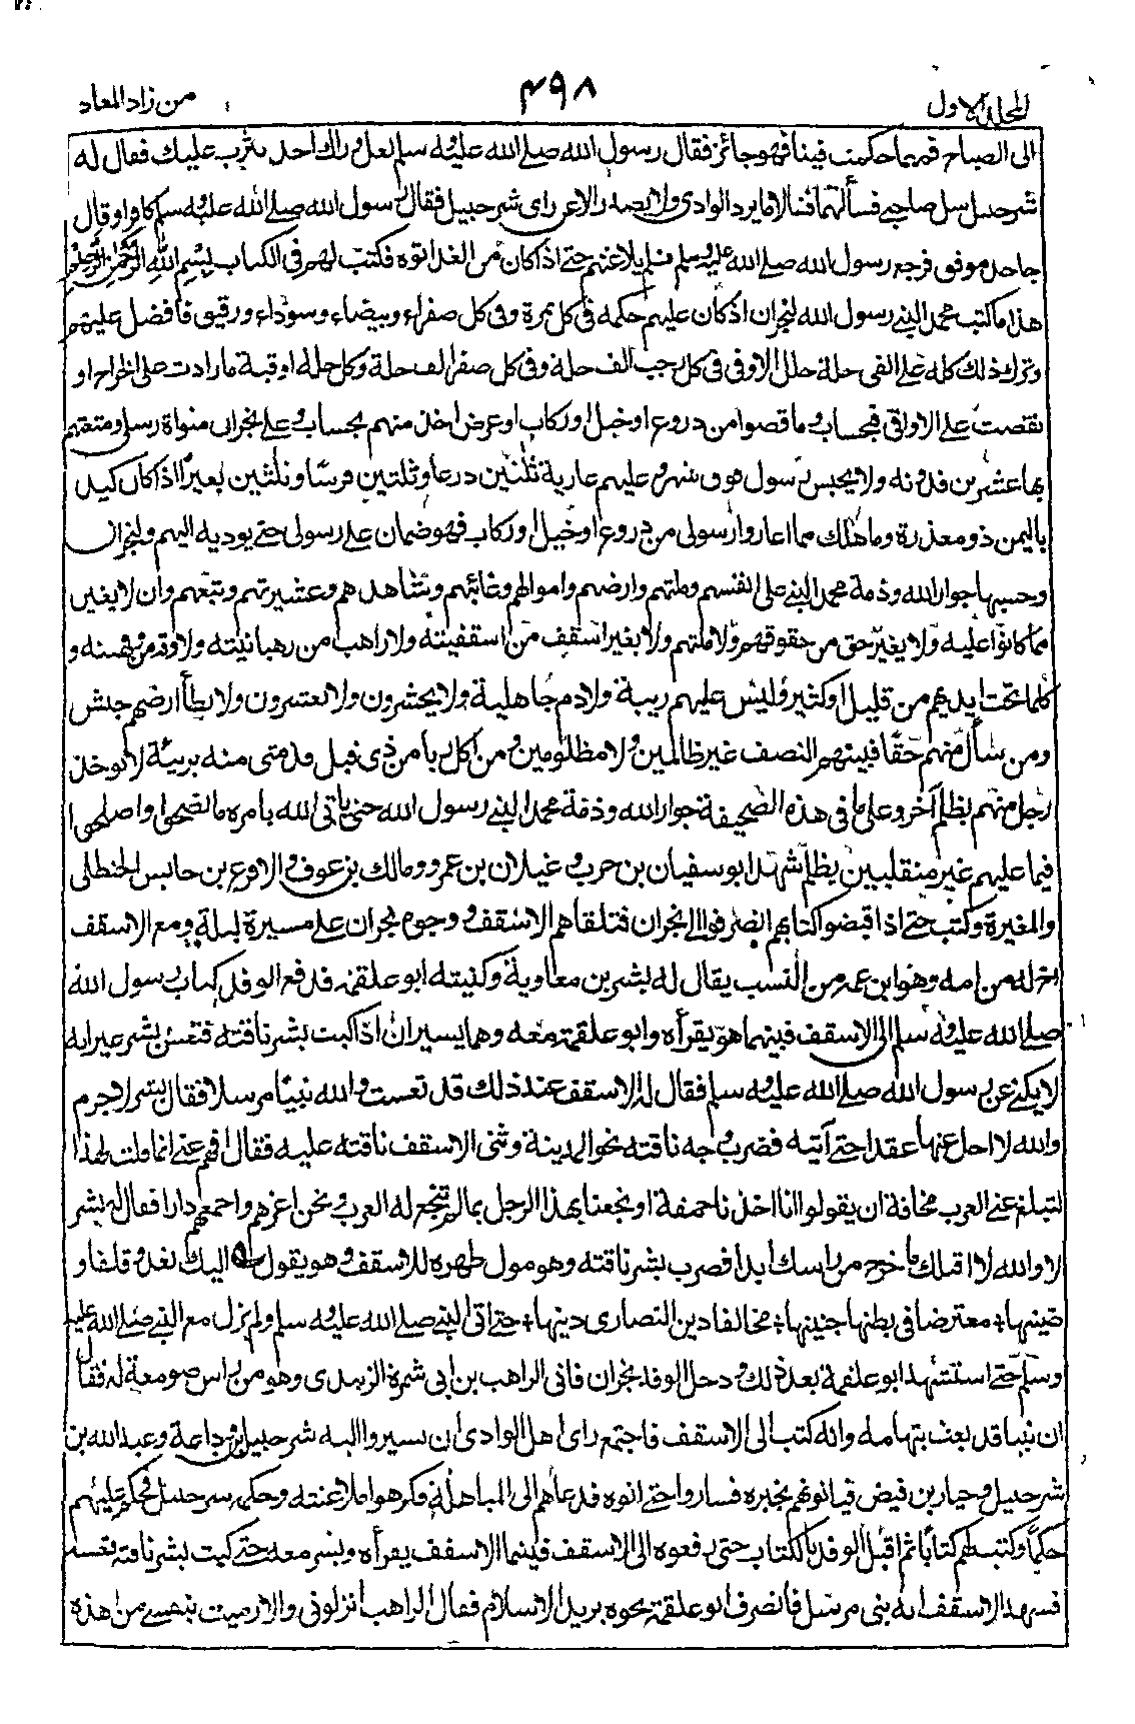 المجلد الاول ٤٩٨ من زاد المعاد
الى الصباح فمهما حكمت فينا فهو جائز فقال رسول الله صلى الله عليه وسلم لعل وراك احد يثرب عليك فقال له
شرحبيل سل صاحبي فسألهما فقالا ما يرد الوادي ولا يصدر الا عن راى شرحبيل فقال رسول الله صلى الله عليه وسلم كافر او قال
جاحد موفق فرجع رسول الله صلى الله عليه وسلم فلم يلاعنهم حتى اذا كان من الغد اتوه فكتب لهم فى الكتاب بسم الله الرحمن الرحيم
هذا ما كتب محمد النبي رسول الله لنجران اذ كان عليهم حكمه فى كل ثمرة وفى كل صفراء وبيضاء وسوداء ورقيق فافضل عليهم
وترك ذلك كله على الفى حلة حلل الاوقى فى كل رجب الف حلة وفى كل صفر الف حلة وكل حلة اوقية ما زادت على الخراج او
نقصت على الاواقى فبحساب وما قضوا من دروع او خيل او ركاب او عرض اخذ منهم بحساب وعلى نجران مثواة رسلى ومتعتهم
بها عشرين فدونه ولا يحبس رسول فوق شهر وعليهم عارية ثلثين درعا وثلثين فرسا وثلثين بعيرا اذا كان كيد
باليمن ذو معذرة وما هلك مما اعاروا رسولى من دروع او خيل او ركاب فهو ضمان على رسولى حتى يوديه اليهم ولنجران
وحسبها جوار الله وذمة محمد النبي على انفسهم وملتهم وارضهم واموالهم وغائبهم وشاهدهم وعشيرتهم وتبعهم وان لا يغيروا
مما كانوا عليه ولا يغير حق من حقوقهم ولا ملتهم ولا يغير اسقف من اسقفيته ولا راهب من رهبانيته ولا وفه من وفهيته و
كلما تحت ايديهم من قليل او كثير وليس عليهم ريبة ولا دم جاهلية ولا يحشرون ولا يعشرون ولا يطأ ارضهم جيش
ومن سأل منهم حقا فبينهم النصف غير ظالمين ولا مظلومين ومن اكل ربا من ذى قبل فذمتى منه بريئة لا يوخذ
رجل منهم بظلم آخر وعلى ما فى هذه الصحيفة جوار الله وذمة محمد النبي رسول الله حتى ياتى الله بامره ما نصحوا واصلحوا
فيما عليهم غير منقلبين بظلم شهد ابو سفيان بن حرب وغيلان بن عمرو ومالك بن عوف والاقرع بن حابس الحنظلى
والمغيرة وكتب حتى اذا قبضوا كتابهم انصرفوا الى نجران فتلقاهم الاسقف ووجوه نجران على مسيرة ليلة ومع الاسقف
اخ له من امه وهو ابن عمه من النسب يقال له بشر بن معاوية وكنيته ابو علقمة فدفع الوفد كتاب رسول الله
صلى الله عليه وسلم الى الاسقف فبينما هو يقرأه وابو علقمة معه وهما يسيران اذ كبت ببشر ناقته فتعس بشر غير انه
لا يكنى عن رسول الله صلى الله عليه وسلم فقال له الاسقف عند ذلك قد تعست والله نبيا مرسلا فقال بشر لا جرم
والله لا احل عنها عقدا حتى آتيه فضرب وجه ناقته نحو المدينة وثنى الاسقف ناقته عليه فقال افهم عنى انما قلت لهذا
لتبلغ عنى العرب مخافة ان يقولوا انا اخذنا حمقة او نجعنا بهذا الرجل بما لم تنجع له العرب ونحن اعزهم واجمعهم دارا فقال له بشر
لا والله لا اقيلك ما خرج من راسك ابدا فضرب بشر ناقته وهو مول ظهره للاسقف وهو يقول اليك تعدو قلقا و
ضينها معترضا فى بطنها جنينها مخالفا دين النصارى دينها حتى اتى النبي صلى الله عليه وسلم ولم يزل مع النبي صلى الله عليه
وسلم حتى استشهد ابو علقمة بعد ذلك ودخل الوفد نجران فاتى الراهب بن ابى شمرة الزبيدى وهو من راس صومعة له فقال
ان نبيا قد بعث بتهامه وانه كتب الى الاسقف فاجتمع راى اهل الوادى ان يسيروا اليه شرحبيل بن وداعة وعبد الله بن
شرحبيل وحبار بن فيض فياتونهم بخبره فساروا حتى اتوه فدعاهم الى المباهلة فكرهوا ملاعنته وحكمه شرحبيل فحكم عليهم
حكما وكتب لهم كتابا ثم اقبل الوفد بالكتاب حتى دفعوه الى الاسقف فبينما الاسقف يقرأه وبشر معه حتى كبت ببشر ناقته فتعسه
فشهد الاسقف انه نبى مرسل فانصرف ابو علقمة نحوه يريد الاسلام فقال الراهب انزلونى والا رميت بنفسى من هذه